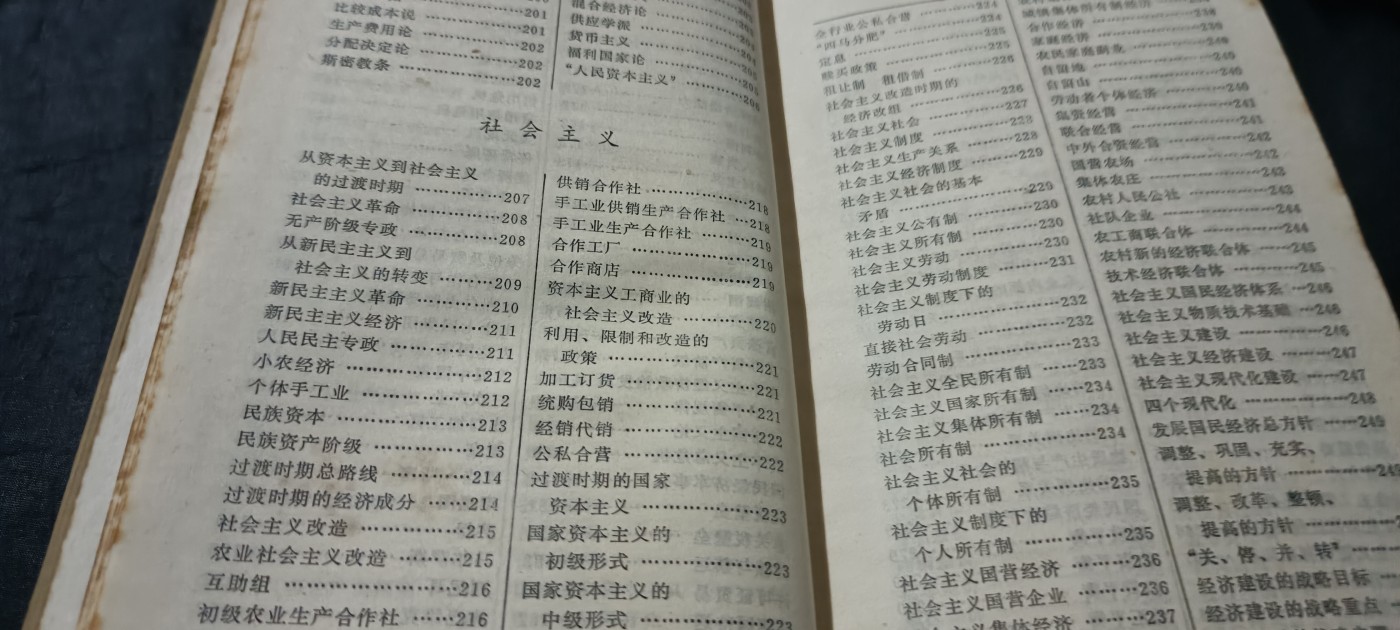 比较成本说 ………………201
生产费用论 ………………202
分配决定论 ………………202
斯密教条 …………………202
混合经济论
供应学派
货币主义
福利国家论
“人民资本主义”
社会主义
从资本主义到社会主义
的过渡时期 ……………207
社会主义革命 ……………208
无产阶级专政 ……………208
从新民主主义到
社会主义的转变 ………209
新民主主义革命 …………210
新民主主义经济 …………211
人民民主专政 ……………211
小农经济 …………………212
个体手工业 ………………212
民族资本 …………………213
民族资产阶级 ……………213
过渡时期总路线 …………214
过渡时期的经济成分 ……214
社会主义改造 ……………215
农业社会主义改造 ………215
互助组 ……………………216
初级农业生产合作社 ……216
供销合作社 ………………218
手工业供销生产合作社 …218
手工业生产合作社 ………219
合作工厂 …………………219
合作商店 …………………219
资本主义工商业的
社会主义改造 …………220
利用、限制和改造的
政策 ……………………221
加工订货 …………………221
统购包销 …………………221
经销代销 …………………222
公私合营 …………………222
过渡时期的国家
资本主义 ………………223
国家资本主义的
初级形式 ………………223
国家资本主义的
中级形式 ………………223
全行业公私合营 …………224
“四马分肥” ………………224
定息 ………………………225
赎买政策 …………………225
租让制 租借制 …………226
社会主义改造时期的
经济改组 ………………226
社会主义社会 ……………227
社会主义制度 ……………228
社会主义生产关系 ………228
社会主义经济制度 ………229
社会主义社会的基本
矛盾 ……………………229
社会主义公有制 …………230
社会主义所有制 …………230
社会主义劳动 ……………230
社会主义劳动制度 ………231
社会主义制度下的
劳动日 …………………232
直接社会劳动 ……………232
劳动合同制 ………………233
社会主义全民所有制 ……233
社会主义国家所有制 ……234
社会主义集体所有制 ……234
社会所有制 ………………234
社会主义社会的
个体所有制 ……………235
社会主义制度下的
个人所有制 ……………235
社会主义国营经济 ………236
社会主义国营企业 ………236
社会主义集体经济 ………237
城镇集体所有制经济
合作经济
家庭经济
农民家庭副业 ……………240
自留地 ……………………240
自留山 ……………………240
劳动者个体经济 …………240
包产经营 …………………241
联合经营 …………………241
中外合资经营 ……………242
国营农场 …………………242
集体农庄 …………………243
农村人民公社 ……………243
社队企业 …………………244
农工商联合体 ……………244
农村新的经济联合体 ……245
技术经济联合体 …………245
社会主义国民经济体系 …246
社会主义物质技术基础 …246
社会主义建设 ……………246
社会主义经济建设 ………247
社会主义现代化建设 ……247
四个现代化 ………………248
发展国民经济总方针 ……249
调整、巩固、充实、
提高的方针 ……………249
调整、改革、整顿、
提高的方针 ……………
“关、停、并、转” …………
经济建设的战略目标 ……
经济建设的战略重点